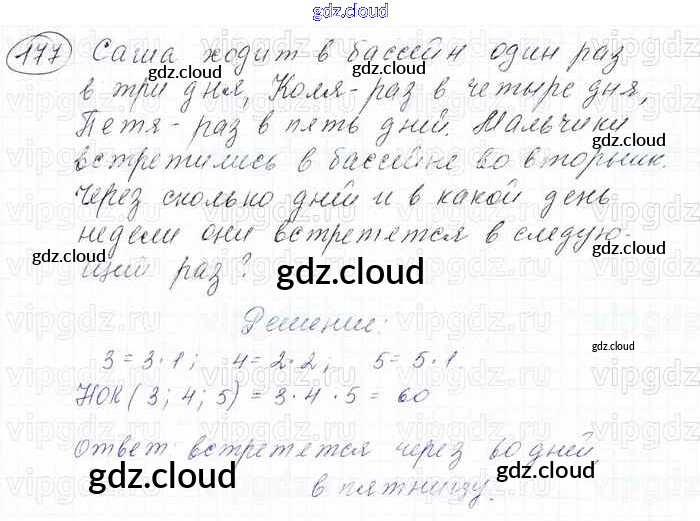 gdz.cloud
177 Саша ходит в бассейн один раз
gdz.cloud gdz.cloud
в три дня, Коля - раз в четыре дня,
gdz.cloud
Петя - раз в пять дней. Мальчики
встретились в бассейне во вторник.
gdz.cloud gdz.cloud
Через сколько дней и в какой день
недели они встретятся в следую-
gdz.cloud gdz.cloud
щий раз?
gdz.cloud
Решение:
gdz.cloud
3 = 3·1; 4 = 2·2; 5 = 5·1.
НОК (3; 4; 5) = 3·4·5 = 60
gdz.cloud
Ответ: встретятся через 60 дней
gdz.cloud gdz.cloud
в пятницу.
vipgdz.ru